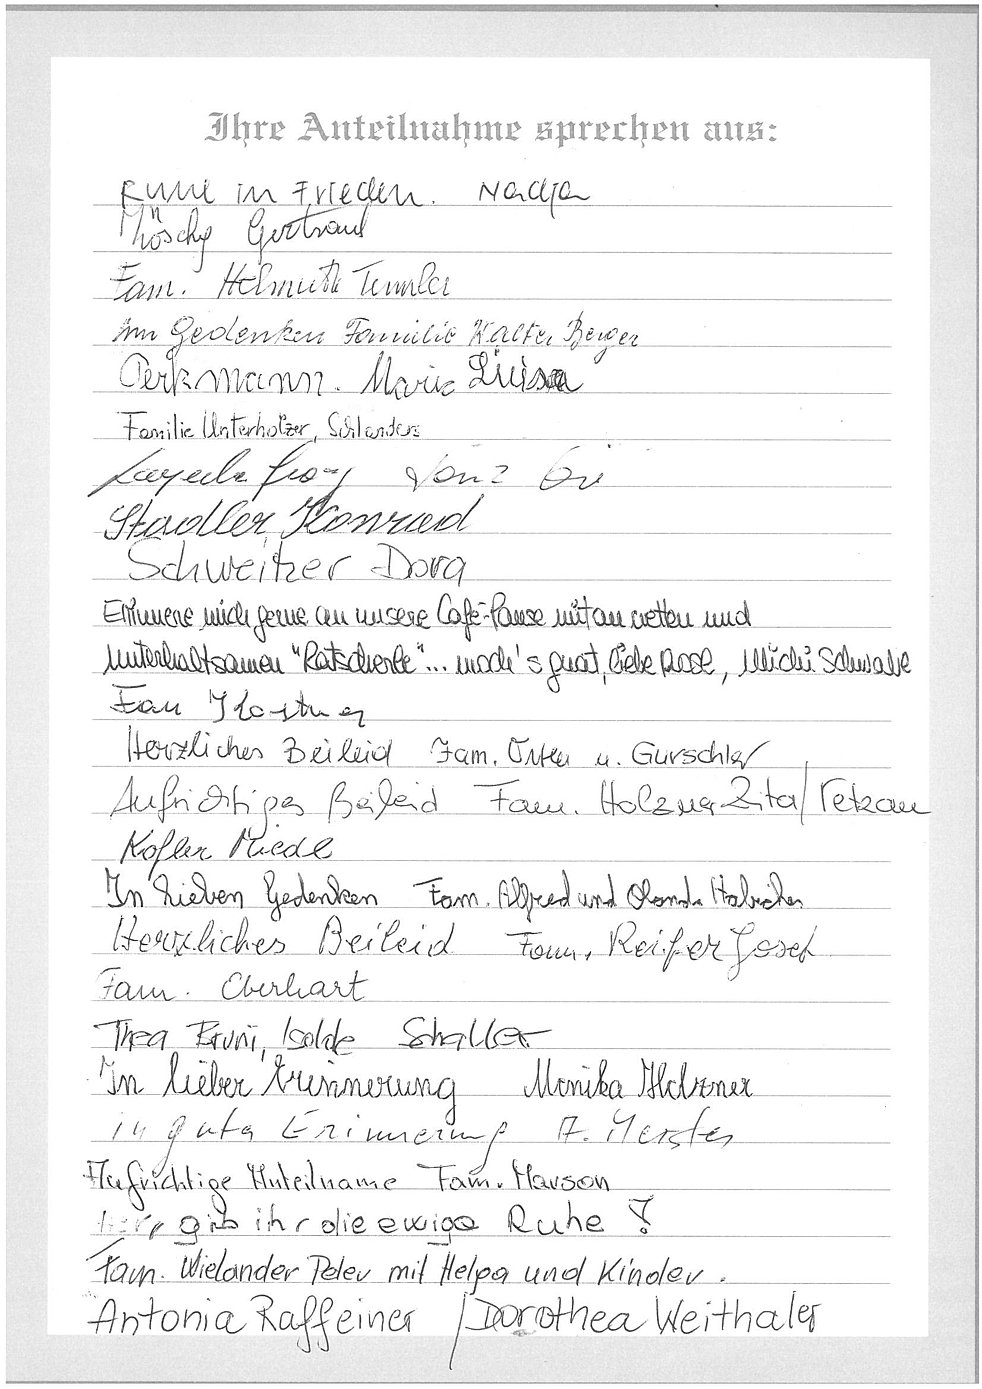 Ihre Anteilnahme sprechen aus:
Ruhe in Frieden. Nadja
Gertraud
Fam. Helmuth
Im Gedenken Familie Walter Berger
Perkmann. Maria Luisa
Familie Unterholzer, Schlanders
Stadler Konrad
Schweitzer Dora
Erinnere mich gerne an unsere Café-Pause mit an netten und
unterhaltsamen "Ratscherle"... moch's guat, liebe Rosl, Michi Schwabe
Fam
Herzliches Beileid Fam. u. Gurschler
Aufrichtiges Beileid Fam. Holzner Zita/Tetzau
Kofler Miedl
In lieben Gedenken Fam. Alfred und
Herzliches Beileid Fam. Reifer Josef
Fam. Eberhart
Thea Bruni, Isolde Schaller
In lieber Erinnerung Monika Holzner
in guter Erinnerung A.
Aufrichtige Anteilname Fam. Marson
Herr, gib ihr die ewige Ruhe!
Fam. Wielander Peter mit Helga und Kinder.
Antonia Raffeiner / Dorothea Weithaler